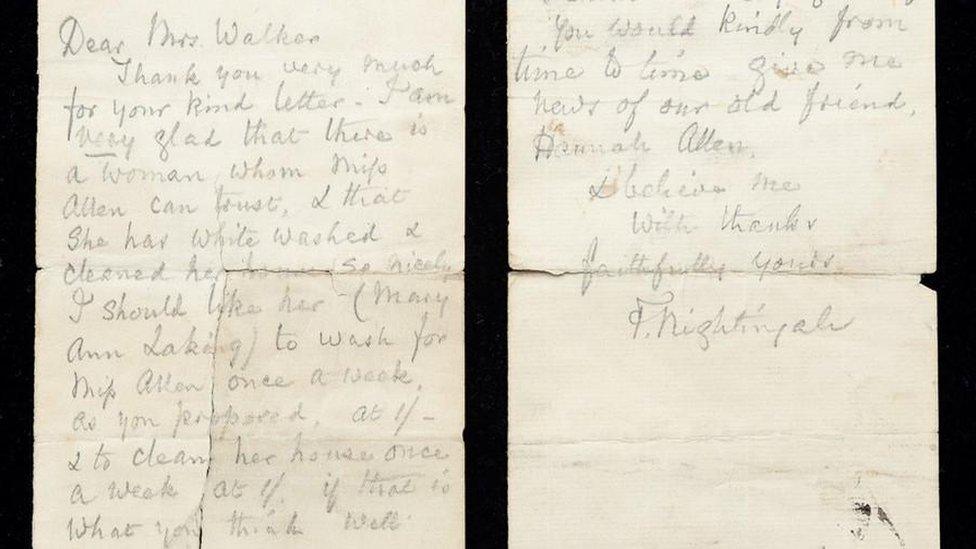 Dear Mrs. Walker
Thank you very much
for your kind letter - I am
very glad that there is
a woman, whom Miss
Allen can trust, & that
She has white washed &
cleaned her house so nicely
I should like her - (Mary
Ann Laking) to wash for
Miss Allen once a week,
as you proposed, at 1/-
& to clean her house once
a week at 1/. if that is
what you think well
You would kindly from
time to time give me
news of our old friend,
Hannah Allen,
& believe me
with thanks
faithfully yours
F. Nightingale